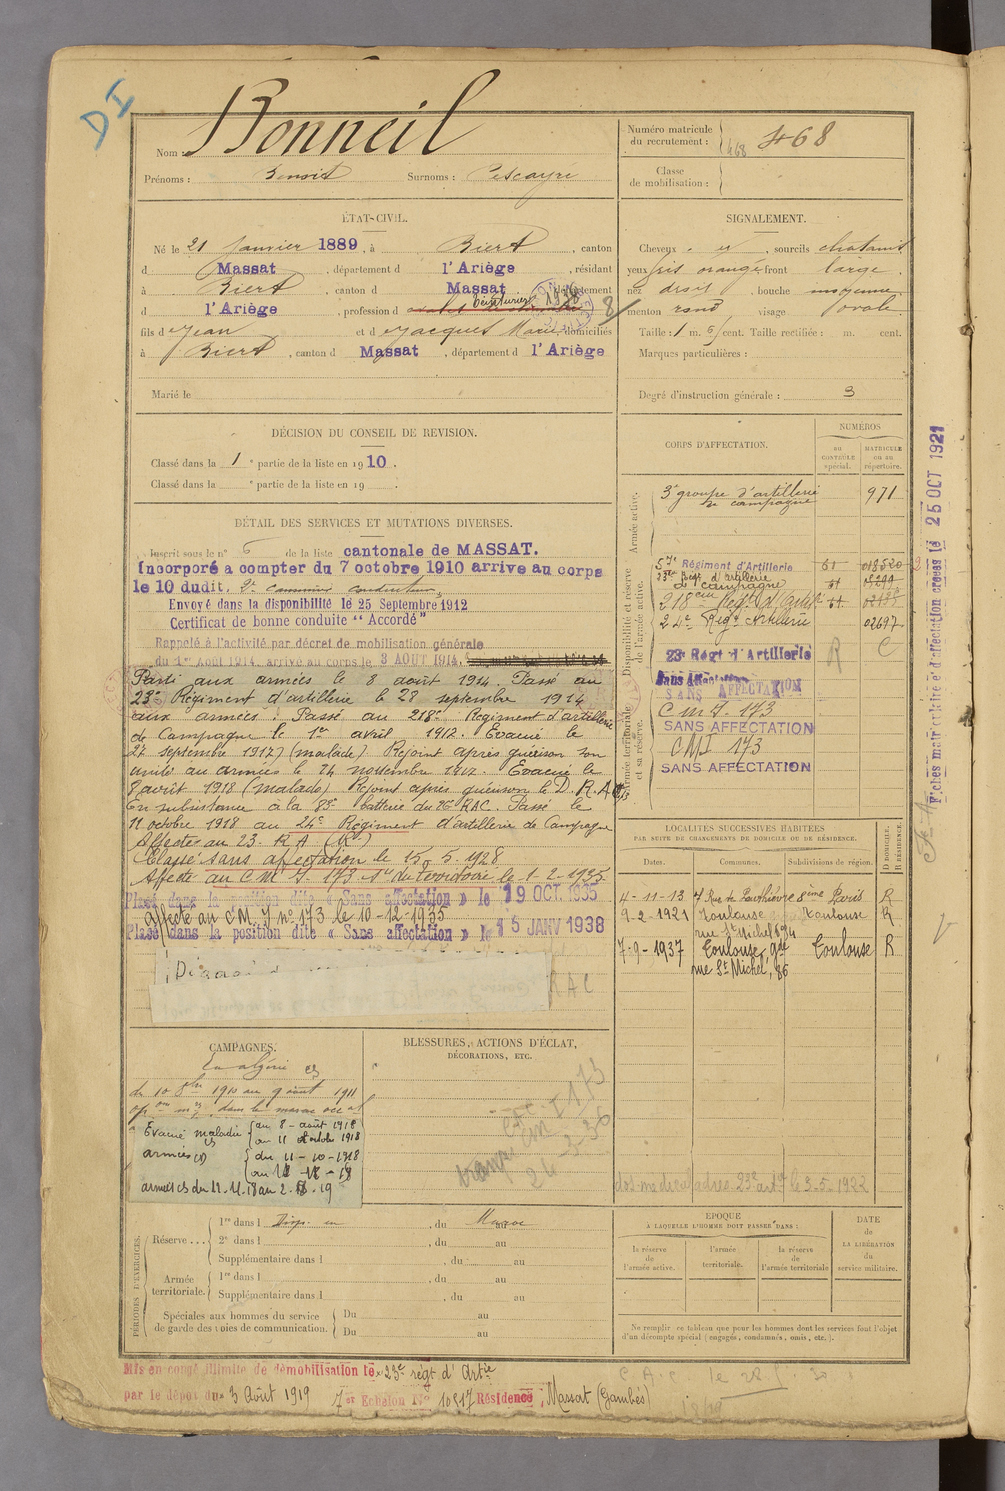 DI
Nom : Bonneil
Prénoms : Benoit Surnoms : Pescayré
Numéro matricule
du recrutement : 468
468
Classe
de mobilisation :
ÉTAT-CIVIL.
Né le 21 janvier 1889, à Biert, canton
d Massat, département d l'Ariège, résidant
à Biert, canton d Massat, département
d l'Ariège, profession d
fils d Jean et d Jacquet Marie domiciliés
à Biert, canton d Massat, département d l'Ariège
Marié le
SIGNALEMENT.
Cheveux , sourcils chatains
yeux gris orangé front large
nez droit, bouche moyenne
menton rond visage ovale
Taille : 1 m. 6 cent. Taille rectifiée : m. cent.
Marques particulières :
Degré d'instruction générale : 3
DÉCISION DU CONSEIL DE REVISION.
Classé dans la 1e partie de la liste en 1910.
Classé dans la e partie de la liste en 19 .
DÉTAIL DES SERVICES ET MUTATIONS DIVERSES.
Inscrit sous le n° 6 de la liste cantonale de MASSAT.
Incorporé a compter du 7 octobre 1910 arrivé au corps
le 10 dudit, 2e cannonier conducteur
Envoyé dans la disponibilité le 25 Septembre 1912
Certificat de bonne conduite "Accordé"
Rappelé à l'activité par décret de mobilisation générale
du 1er Août 1914, arrivé au corps le 3 AOUT 1914.
Parti aux armées le 8 août 1914. Passé au
23e Régiment d'artillerie le 28 septembre 1914
aux armées. Passé au 218e Régiment d'artillerie
de Campagne le 1er avril 1917. Evacué le
27 septembre 1917 (malade) Rejoint après guérison son
unité au armées le 24 novembre 1917. Evacué le
8 août 1918 (malade) Rejoint après guérison le D.R.A
En subsistance à la 83e batterie du 26e RAC. Passé le
11 octobre 1918 au 24e Régiment d'artillerie de Campagne
Affecté au 23. R A
Classé sans affectation le 15-5-1928
Affecté au C M I. 173 le 1-2-1935
Placé dans la position dite « Sans affectation » le 19 OCT. 1935
affecté au C M I n° 173 le 10-12-1935
Placé dans la position dite « Sans affectation » le 15 JANV 1938
RAC
CORPS D'AFFECTATION.
NUMÉROS
DU CONTROLE spécial.
MATRICULE ou au répertoire.
Armée active.
3e groupe d'artillerie
de campagne 971
Disponibilité et réserve
de l'armée active.
57e Régiment d'Artillerie 61 018520
23e Regt d'artillerie
de campagne
218eme Regt d'Artil
24e Regt Artillerie 02697
23e Régt d'Artillerie R C
Sans Affectation
SANS AFFECTATION
Armée territoriale
et sa réserve.
C M I - 173
SANS AFFECTATION
CMI 173
SANS AFFECTATION
Fiches matricule et d'affectation créées le 25 OCT 1921
LOCALITÉS SUCCESSIVES HABITÉES
PAR SUITE DE CHANGEMENTS DE DOMICILE OU DE RÉSIDENCE.
Dates. Communes. Subdivisions de région. D DOMICILE. R RÉSIDENCE.
4-11-13 7 Rue de Penthièvre 8ème Paris R
9-2-1921 Toulouse Toulouse R
rue St Michel 84
7-9-1937 Toulouse, gde Toulouse R
rue St Michel, 86
CAMPAGNES.
En algérie
du 10 8bre 1910 au 9 août 1911
Evacué maladie { au 8-août 1918
au 11 octobre 1918
armées { du 11-10-1918
du 11.11.18 au 2.8.19
BLESSURES, ACTIONS D'ÉCLAT,
DÉCORATIONS, ETC.
PÉRIODES D'EXERCICES.
Réserve ... 1re dans l Disp. en , du Maroc au
2e dans l , du au
Supplémentaire dans l , du au
Armée
territoriale. 1re dans l , du au
Supplémentaire dans l , du au
Spéciales aux hommes du service
de garde des voies de communication. Du au
Du au
EPOQUE
À LAQUELLE L'HOMME DOIT PASSER DANS :
la réserve
de
l'armée active.
l'armée
territoriale.
la réserve
de
l'armée territoriale
DATE
de
LA LIBÉRATION
du
service militaire.
Ne remplir ce tableau que pour les hommes dont les services font l'objet
d'un décompte spécial (engagés, condamnés, omis, etc.).
Mis en congé illimité de démobilisation le 23e régt d'Artie
par le dépôt du 3 Août 1919 7er Echelon No 10517 Résidence : Massat (Gambés)